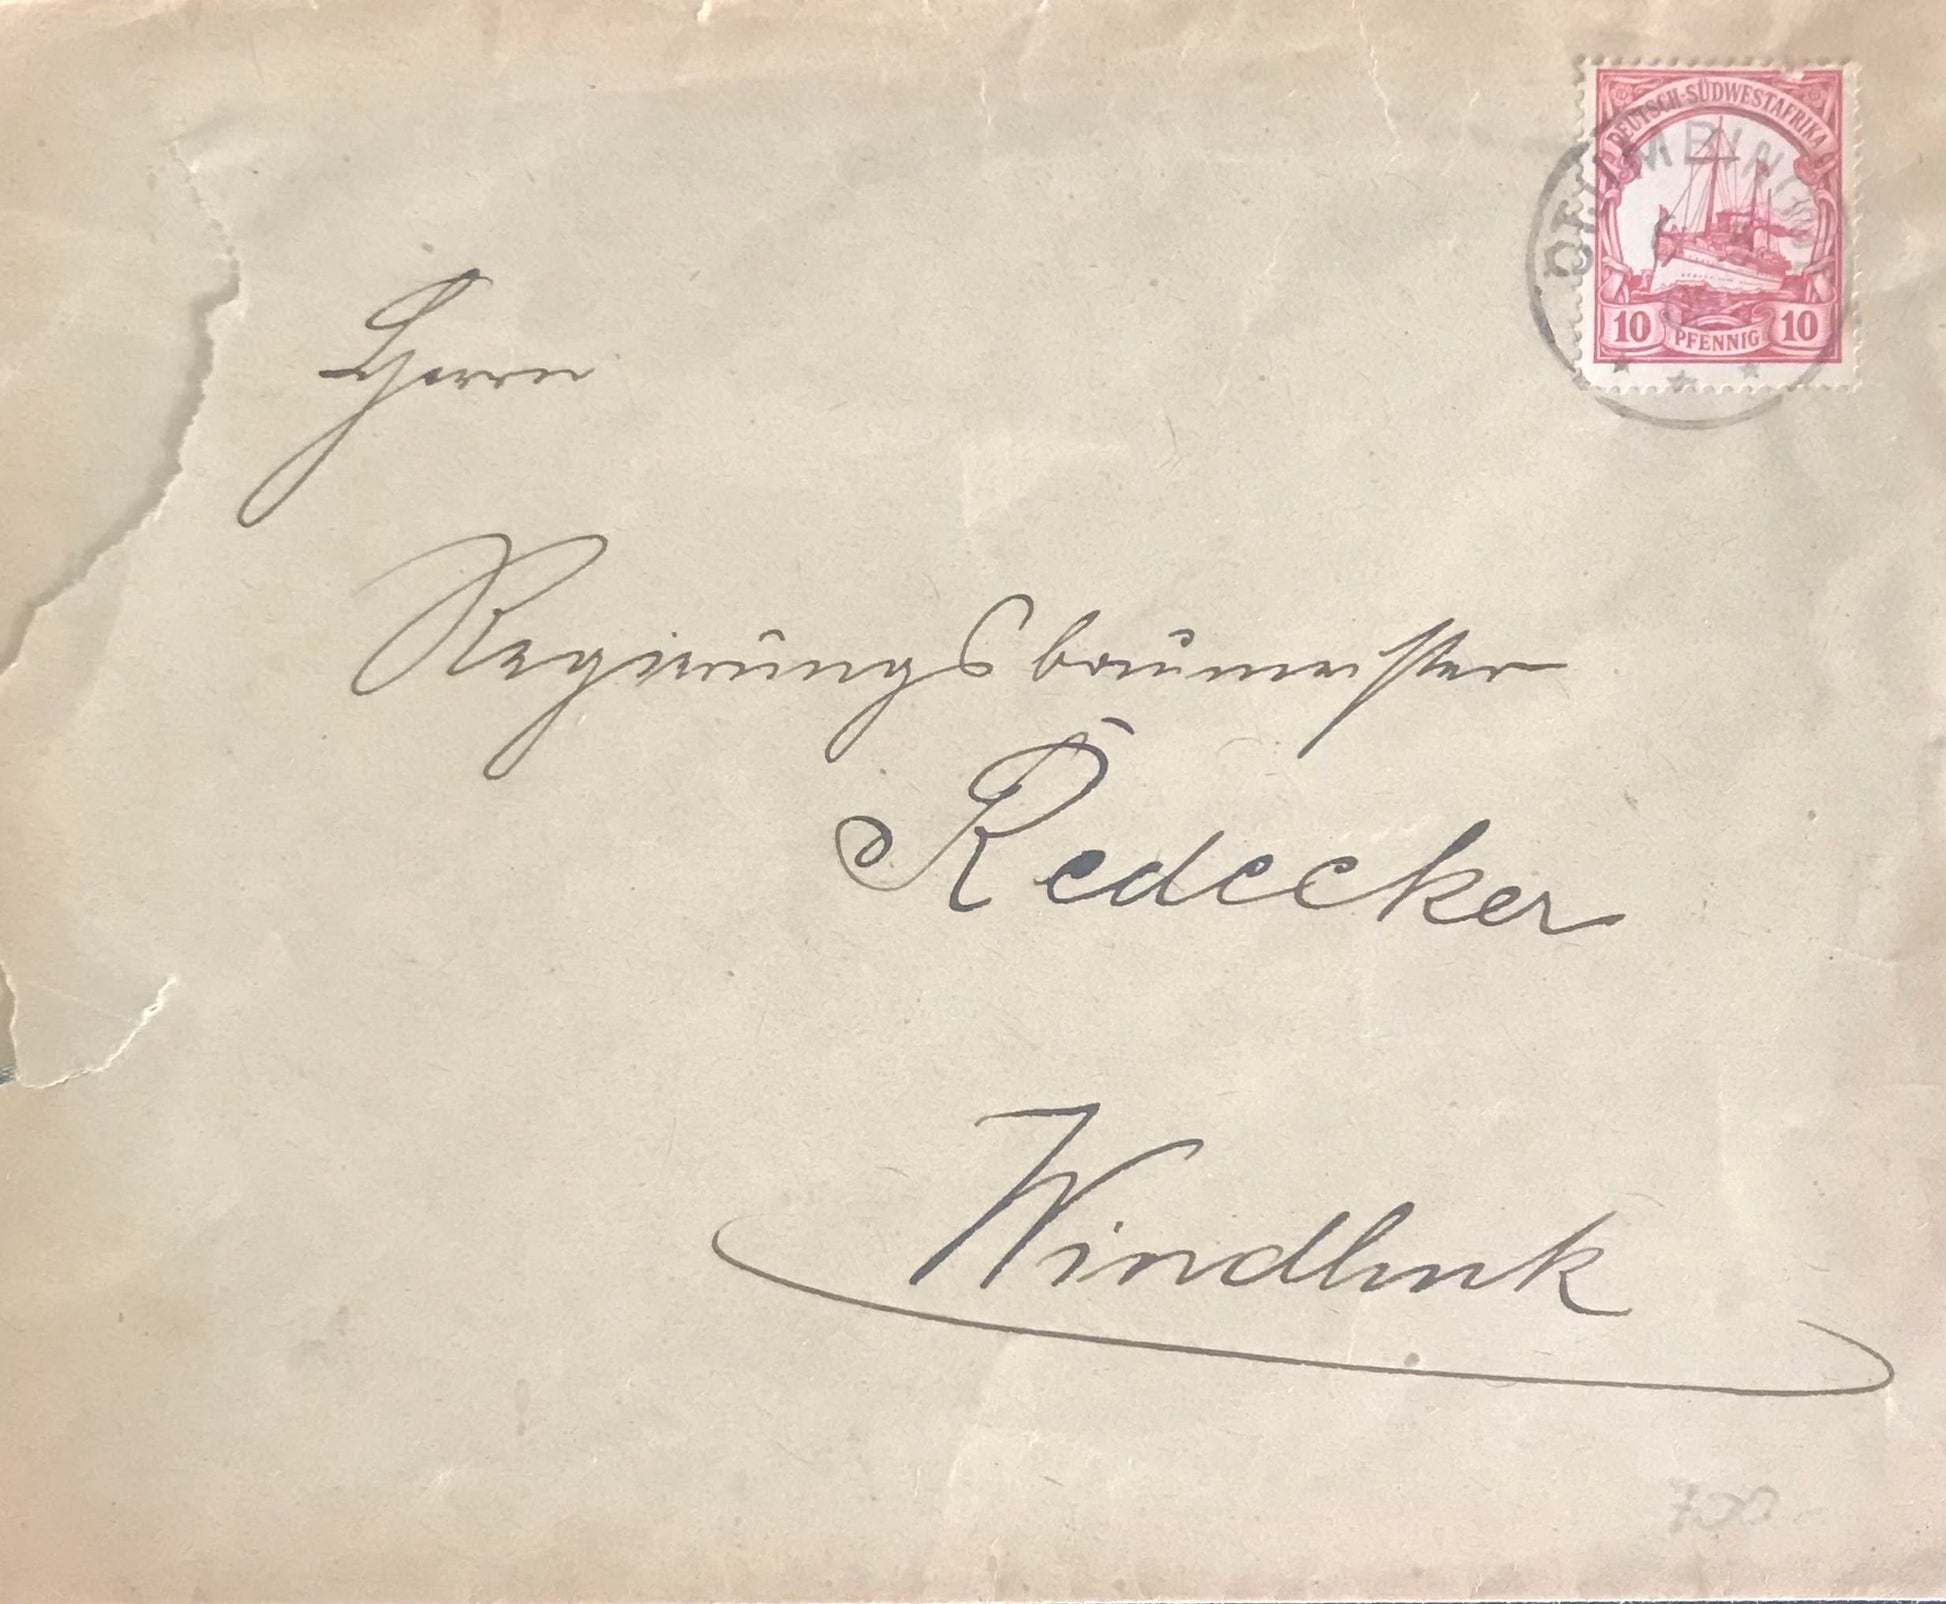 DEUTSCH-SÜDWESTAFRIKA
10 PFENNIG 10
Herrn
Regierungsbaumeister
Redecker
Windhuk
700.-